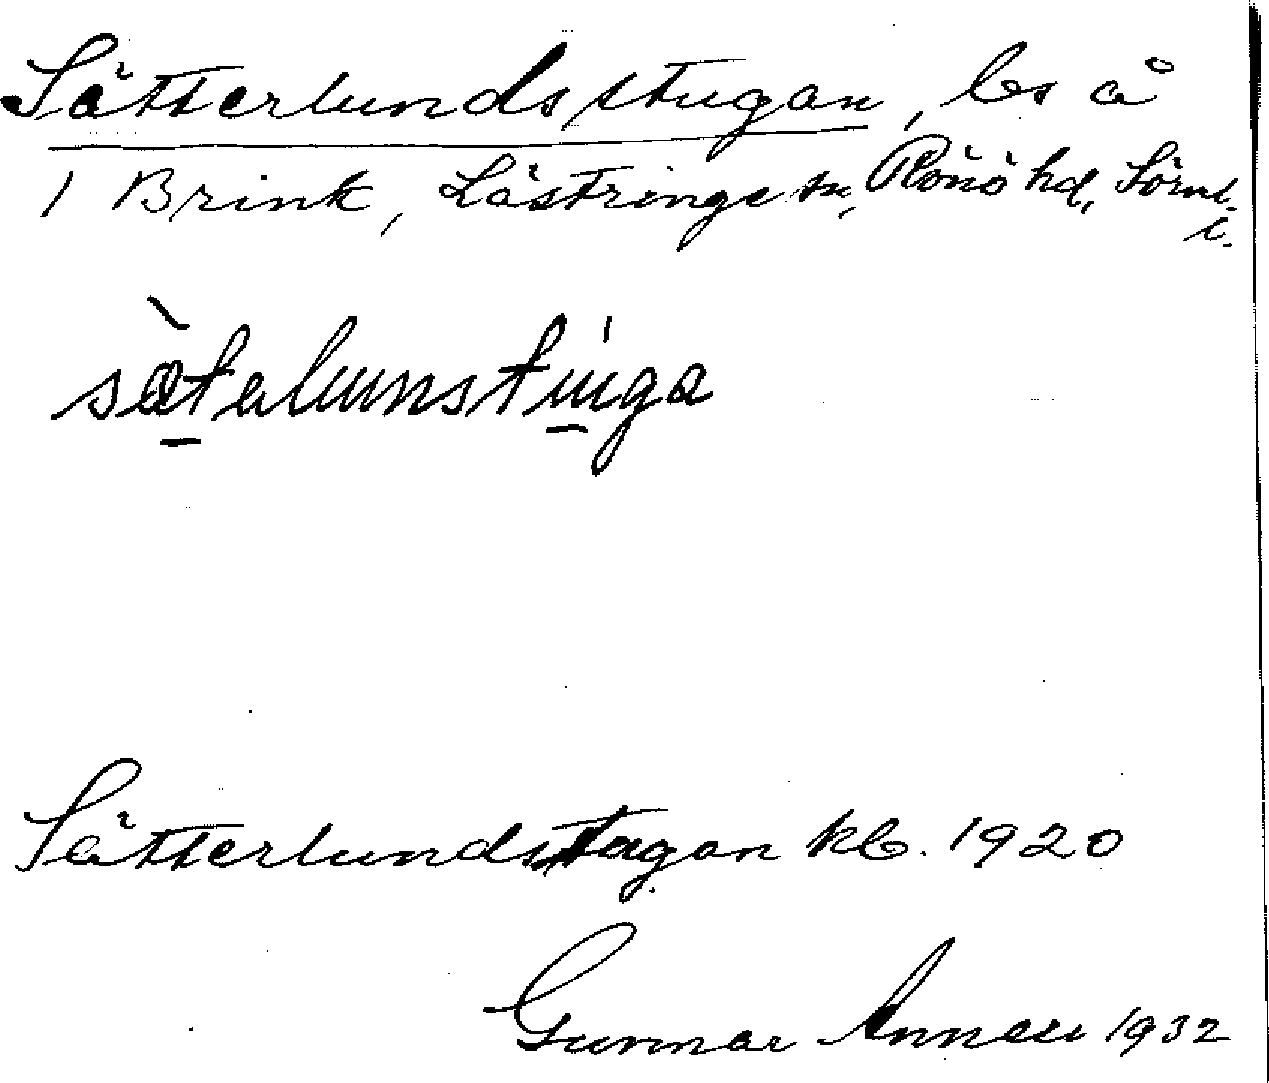 Sätterlundsstugan, ls å
1 Brink, Lästringe sn, Rönö hd, Sörml.
l.
sätalunstuga
Sätterlundsstugan kb. 1920
Gunnar Annell 1932